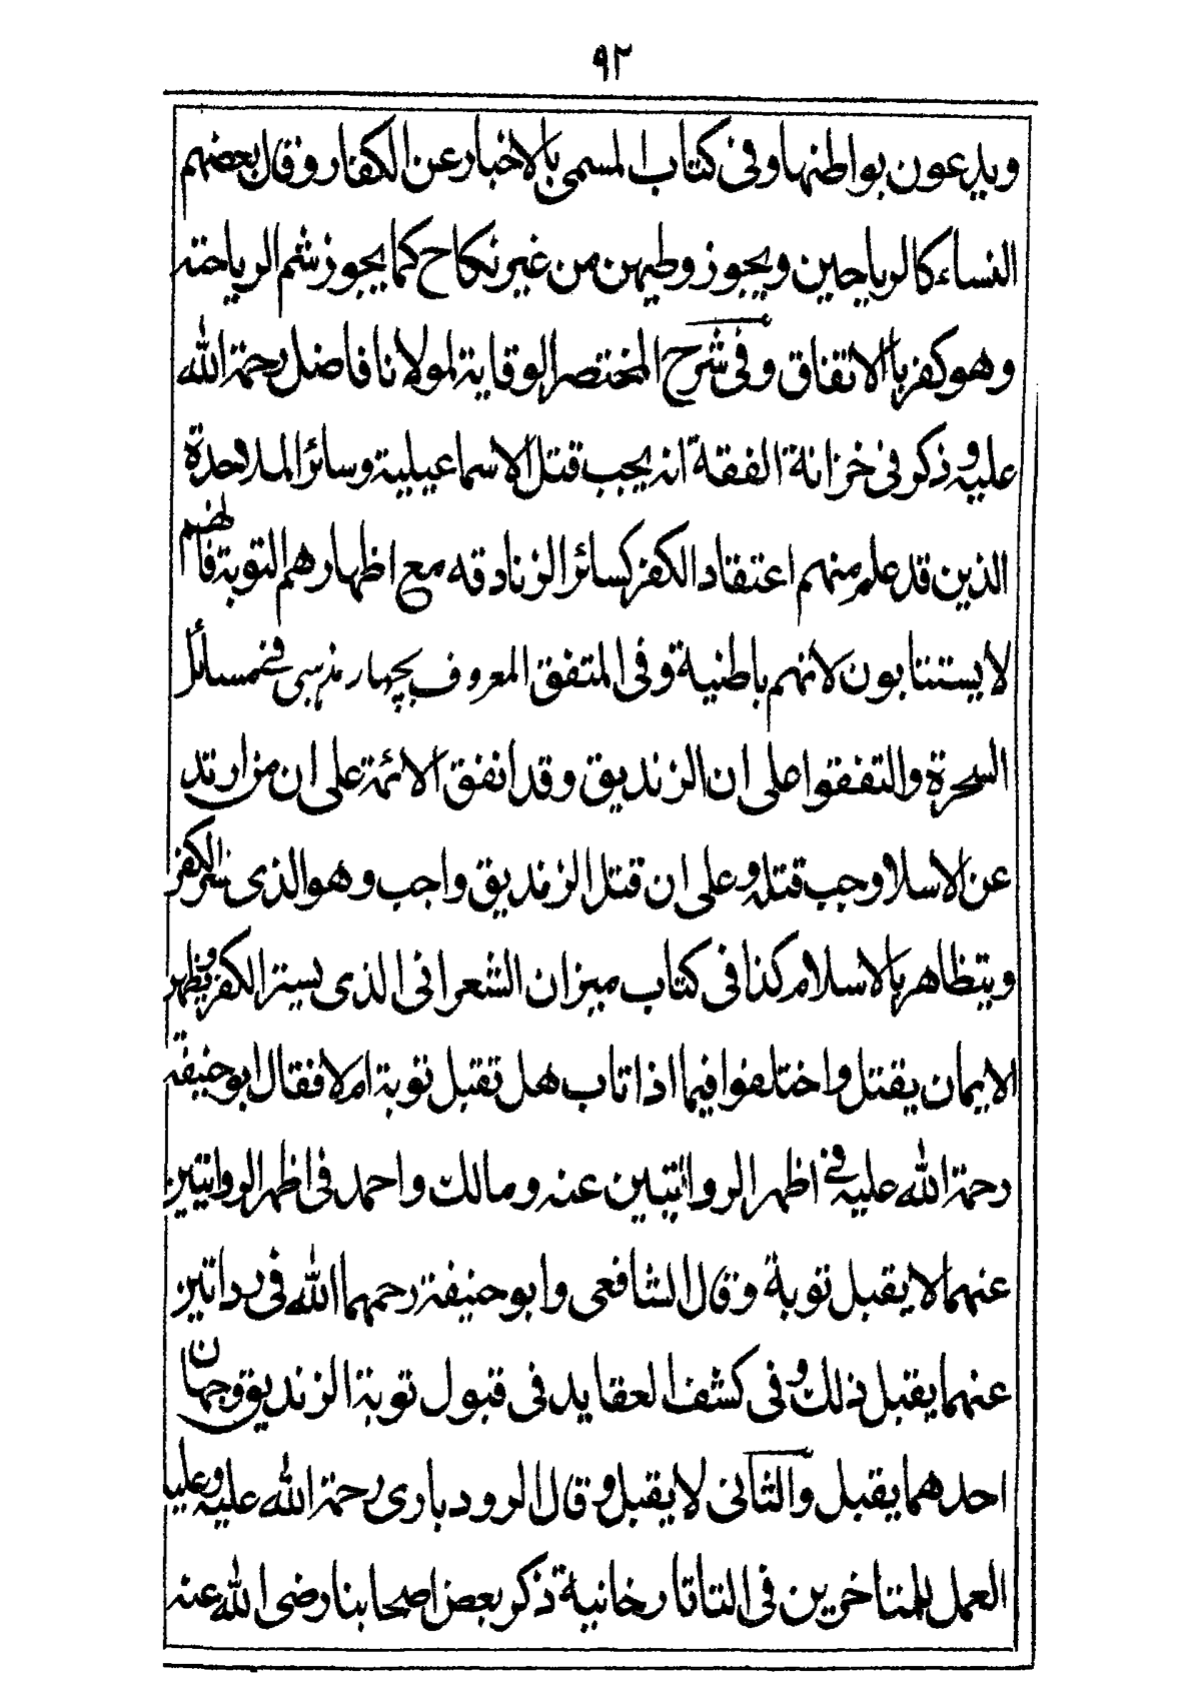 ٩٢
ويدعون بواطنها وفى كتاب المسمى بالاخبار عن الكفار وقال بعضهم
النساء كالرياحين ويجوز وطيهن من غير نكاح كما يجوز شم الرياحنه
وهو كفر بالاتفاق وفى شرح المختصر الوقاية لمولانا فاضل رحمة الله
عليه وذكر فى خزانة الفقة انه يجب قتل الاسماعيلية وسائر الملاحدة
الذين قد علم منهم اعتقاد الكفر كسائر الزنادقه مع اظهارهم التوبة فانهم
لا يستتابون لانهم باطنية وفى المتفق المعروف بچهار مذہبى فى مسائل
السحرة والتفقوا على ان الزنديق وقد اتفق الائمة على ان من ارتد
عن الاسلا وجب قتله وعلى ان قتل الزنديق واجب وهو الذى يسر الكفر
ويتظاهر بالاسلام كذا فى كتاب ميزان الشعرانى الذى يستر الكفر ويظهر
الايمان يقتل واختلفوا فيما اذا تاب هل تقبل توبة ام لا فقال ابو حنيفة
رحمة الله عليه فى اظهر الروائتين عنه ومالك واحمد فى اظهر الروايتين
عنهما لا يقبل توبة وقال الشافعى وابو حنيفة رحمهما الله فى رداتين
عنهما يقبل ذلك وفى كشف العقايد فى قبول توبة الزنديق وجهان
احدهما يقبل والثانى لا يقبل وقال الرودبارى رحمة الله عليه وعليه
العمل للمتاخرين فى التاتارخانية ذكر بعض اصحابنا رضى الله عنه